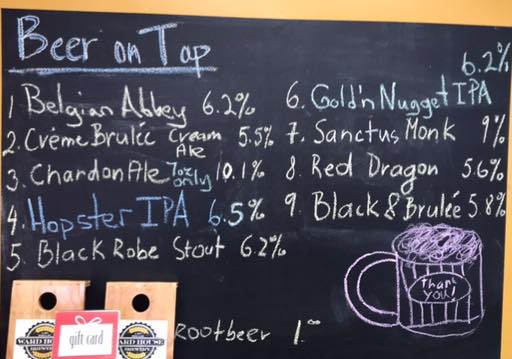 Beer on Tap
1 Belgian Abbey 6.2%
2. Crème Brulée Cream Ale 5.5%
3. Chardon Ale 7oz only 10.1%
4. Hopster IPA 6.5%
5. Black Robe Stout 6.2%
6. Gold'n Nugget IPA 6.2%
7. Sanctus Monk 9%
8. Red Dragon 5.6%
9. Black & Brulée 5.8%
Thank
you!
WARD HOUSE
BREWERY
gift card
WARD HOUSE
BREWERY
Rootbeer 1.00